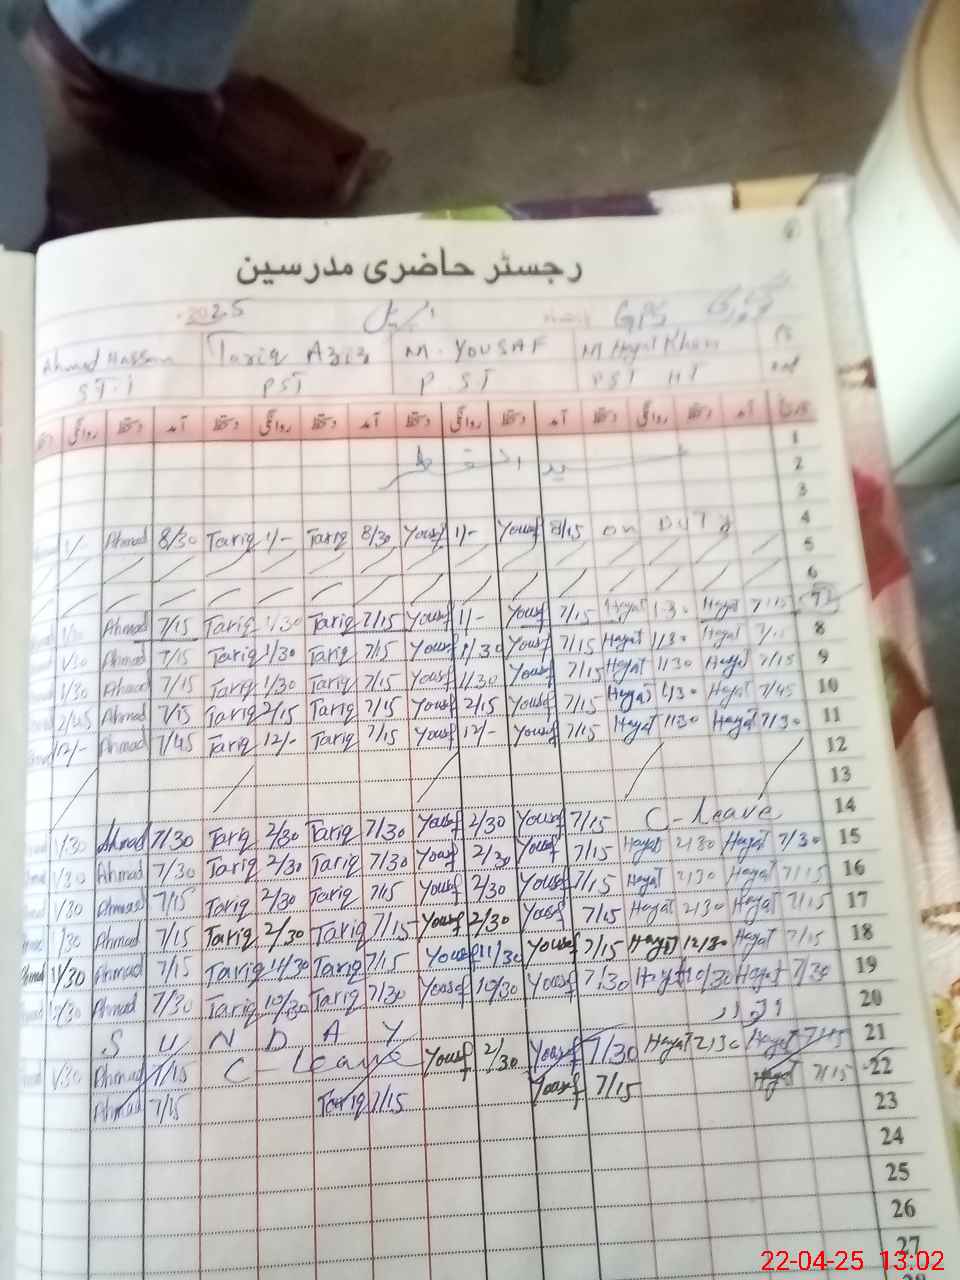 رجسٹر حاضری مدرسین
2025 اپریل GPS
Ahmad Hassan Tariq Aziz M. YOUSAF M Hayat Khan
PST PST PST HT
روانگی دستخط آمد دستخط روانگی دستخط آمد دستخط روانگی دستخط آمد دستخط روانگی دستخط آمد تاریخ
1
عید الفطر 2
3
1/- Ahmad 8/30 Tariq 1/- Tariq 8/30 Yousf 1/- Yousf 8/15 on Duty 4
5
6
1/30 Ahmad 7/15 Tariq 1/30 Tariq 7/15 Yousf 1/- Yousf 7/15 Hayat 1-30 Hayat 7/15
1/30 Ahmad 7/15 Tariq 1/30 Tariq 7/15 Yousf 1/30 Yousf 7/15 Hayat 1/30 Hayat 8
1/30 Ahmad 7/15 Tariq 1/30 Tariq 7/15 Yousf 1/30 Yousf 7/15 Hayat 1130 Hayat 7/15 9
2/45 Ahmad 7/15 Tariq 2/15 Tariq 7/15 Yousf 2/15 Yousf 7/15 Hayat 1/30 Hayat 7/45 10
12/- Ahmad 7/45 Tariq 12/- Tariq 7/15 Yousf 12/- Yousf 7/15 Hayat 1130 Hayat 7/30 11
12
13
1/30 Ahmad 7/30 Tariq 2/30 Tariq 7/30 Yousf 2/30 Yousf 7/15 C-Leave 14
1/30 Ahmad 7/30 Tariq 2/30 Tariq 7/30 Yousf 2/30 Yousf 7/15 Hayat 2130 Hayat 7/30 15
1/30 Ahmad 7/15 Tariq 2/30 Tariq 7/15 Yousf 2/30 Yousf 7/15 Hayat 2130 Hayat 7/15 16
1/30 Ahmad 7/15 Tariq 2/30 Tariq 7/15 Yousf 2/30 Yousf 7/15 Hayat 2130 Hayat 7/15 17
11/30 Ahmad 7/15 Tariq 11/30 Tariq 7/15 Yousf 11/30 Yousf 7/15 Hayat 12/30 Hayat 7/15 18
Ahmad 7/30 Tariq 10/30 Tariq 7/30 Yousf 10/30 Yousf 7/30 Hayat 10/30 Hayat 7/30 19
SUNDAY اتوار 20
1/30 Ahmad 7/15 C-Leave Yousf 2/30 Yousf 7/30 Hayat 2130 Hayat 7/45 21
Ahmad 7/15 Tariq 7/15 Yousf 7/15 Hayat 7/15 22
23
24
25
26
27
28
22-04-25 13:02